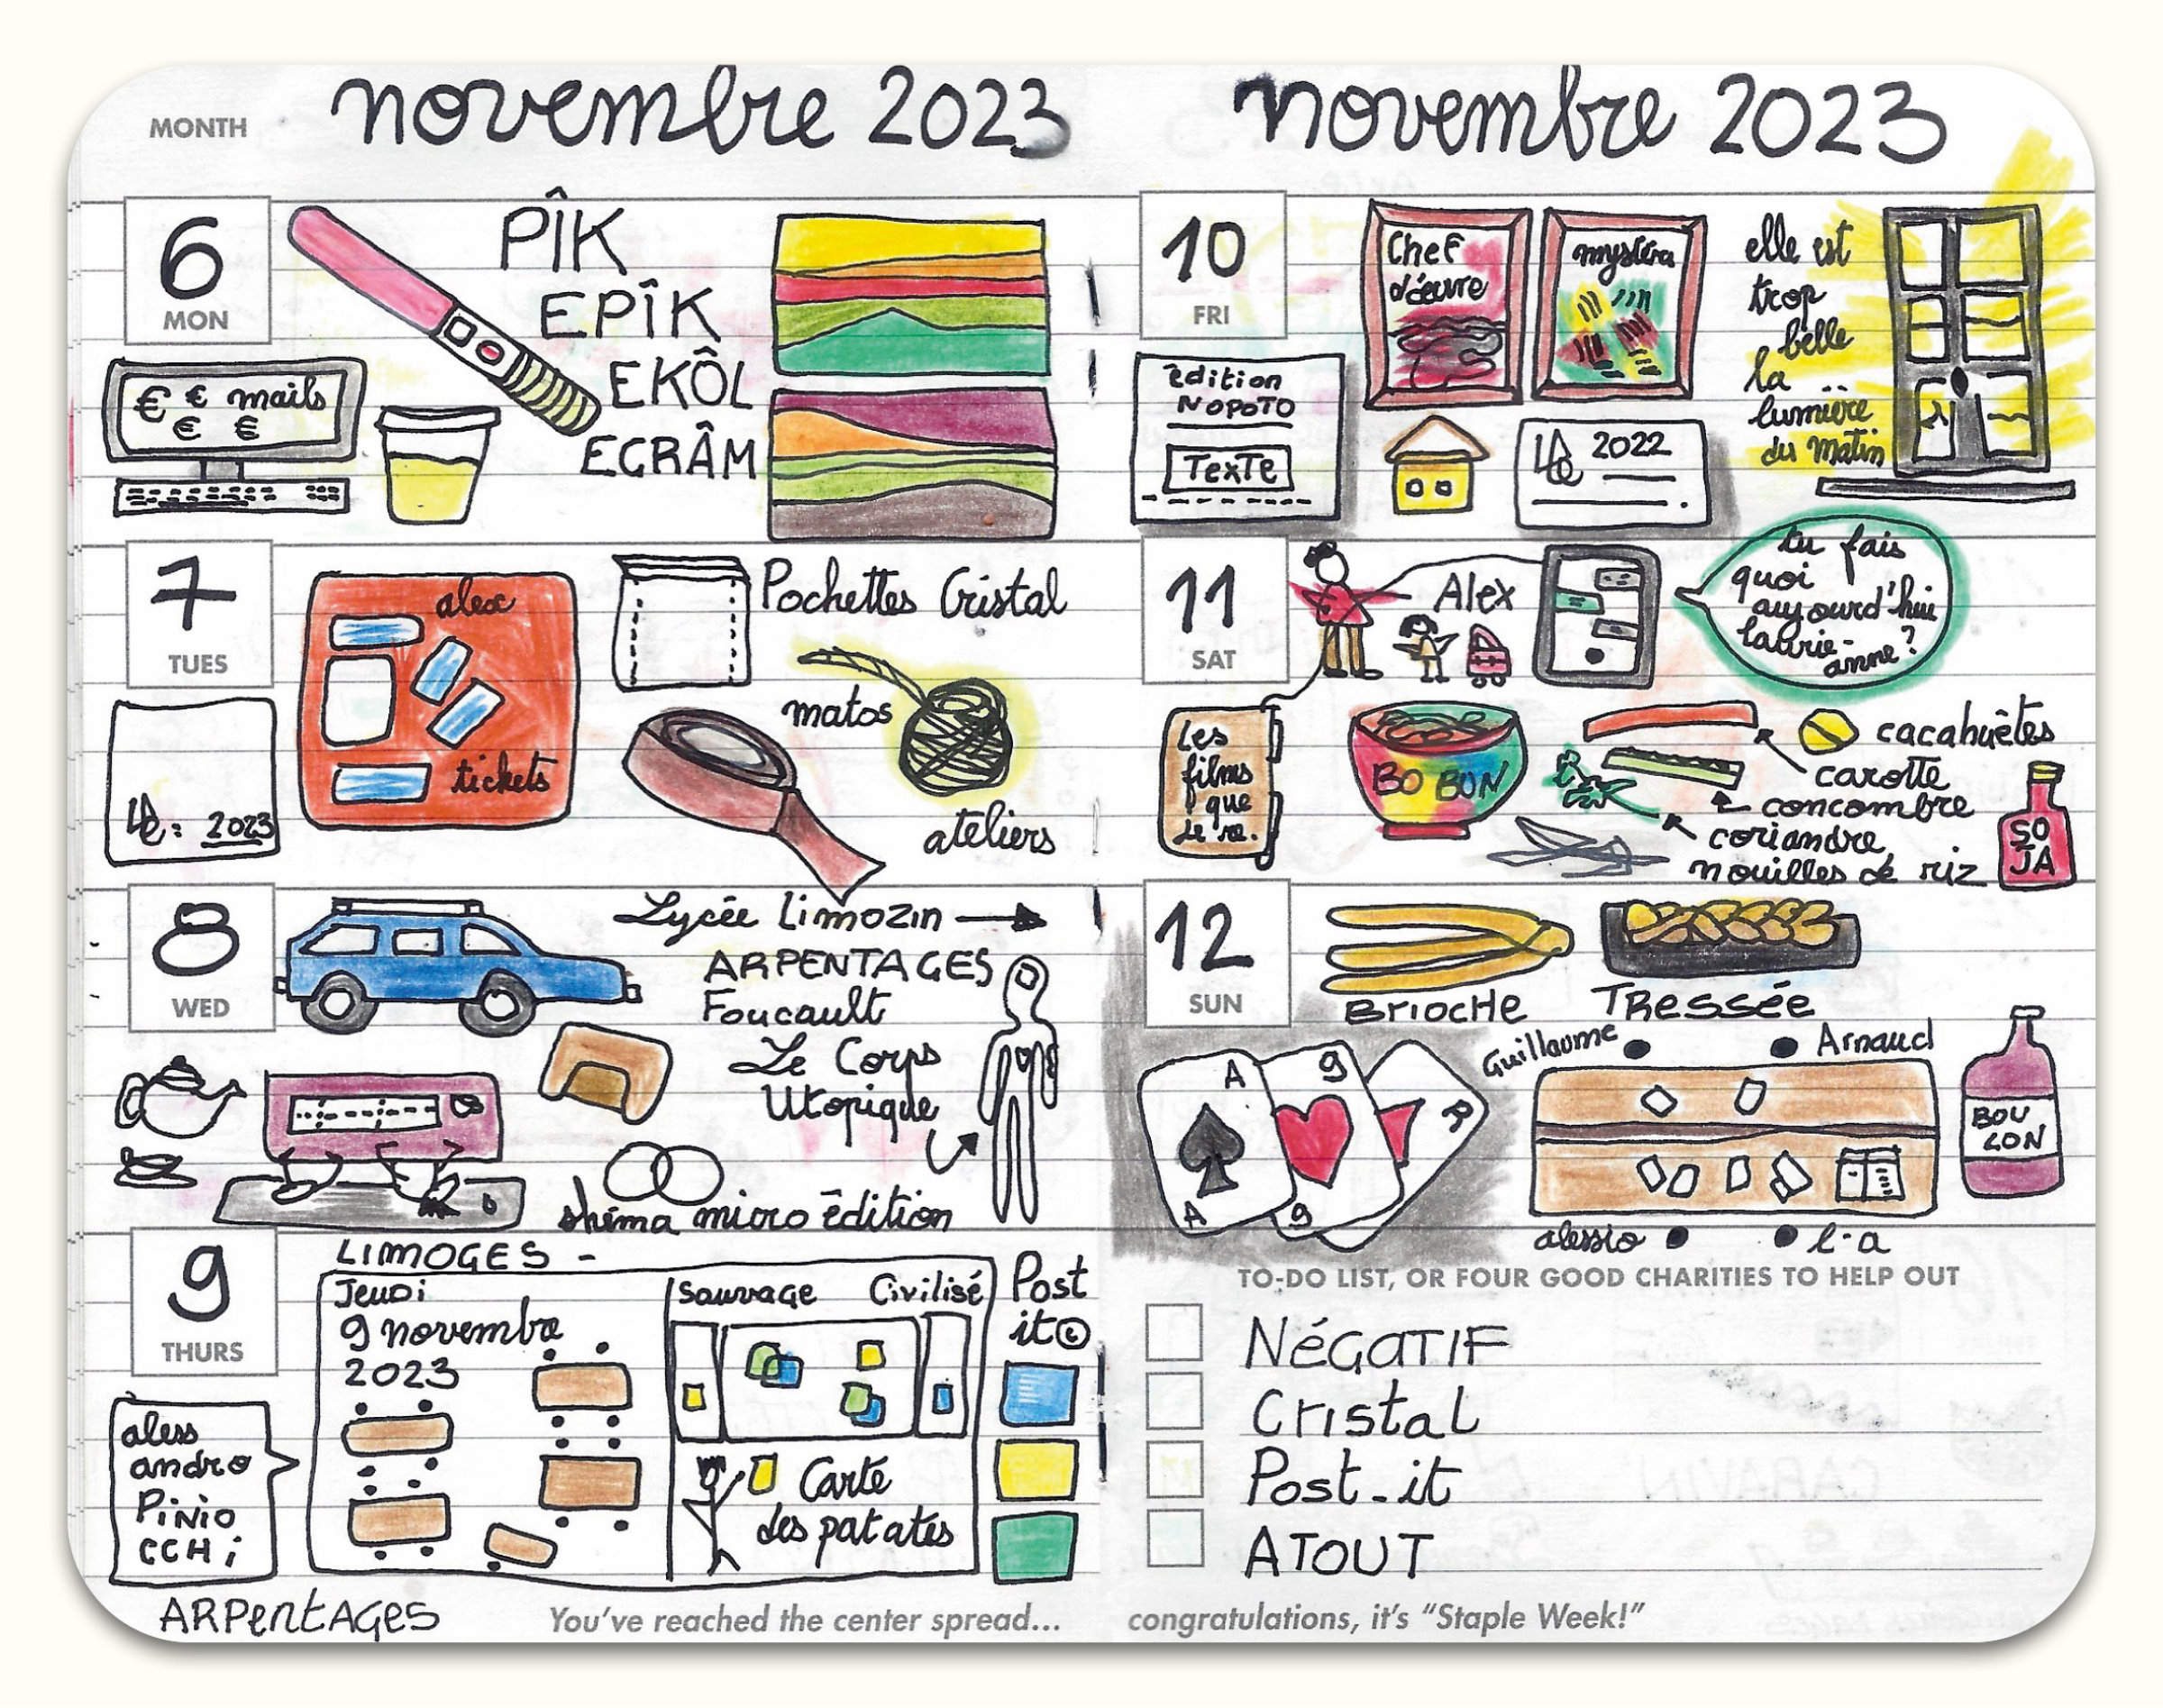 MONTH
novembre 2023
6
MON
PÎK
EPÎK
EKÔL
ECRÂM
€ € mails
€ €
7
TUES
alex
tickets
Pochettes Cristal
matos
ateliers
2023
8
WED
Lycée Limozin
ARPENTAGES
Foucault
Le Corps
Utopique
shéma micro êdition
9
THURS
LIMOGES -
Jeudi
9 novembre
2023
Sauvage Civilisé
Carte
des patates
Post
it
aless
andro
PiNio
CCHi
ARPentAGES
You've reached the center spread...
novembre 2023
10
FRI
Chef
d'œuvre
mystéra
elle est
trop
belle
la
lumière
du matin
êdition
NOPOTO
TexTe
2022
11
SAT
Alex
tu fais
quoi
aujourd'hui
laurie-
anne?
Les
films
que
je re.
BO BUN
cacahuêtes
carotte
concombre
coriandre
nouilles de riz
SO
JA
12
SUN
BRIOCHE TRESSÉE
Guillaume Arnaud
A 9 R
A 9
BOU
LON
alessio l-a
TO-DO LIST, OR FOUR GOOD CHARITIES TO HELP OUT
NéGATIF
Cristal
Post-it
ATOUT
congratulations, it's "Staple Week!"